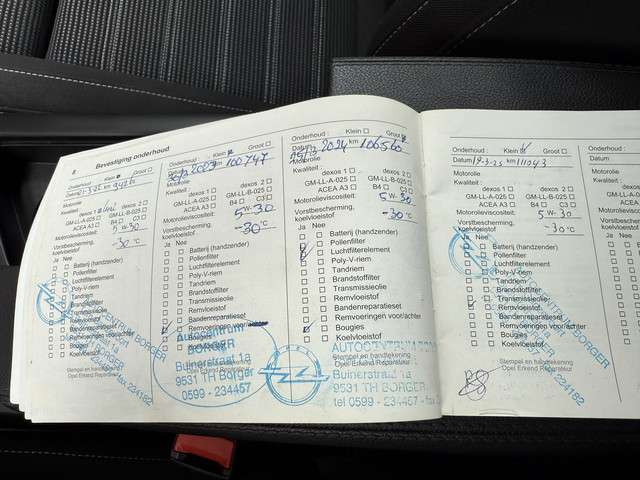 8 Bevestiging onderhoud
Onderhoud: Klein Groot
Datum km
Motorolie
Kwaliteit: dexos 1 dexos 2
GM-LL-A-025 GM-LL-B-025
ACEA A3 B4 C3
Motorolieviscositeit: 5W-30
Vorstbescherming, koelvloeistof -30°C
Ja Nee
Batterij (handzender)
Pollenfilter
Luchtfilterelement
Poly-V-riem
Tandriem
Brandstoffilter
Transmissieolie
Remvloeistof
Bandenreparatieset
Remvoeringen voor/achter
Bougies
Koelvloeistof
Stempel en handtekening
Opel Erkend Reparateur
Onderhoud: Klein Groot
Datum 2023 km 100747
Motorolie
Kwaliteit: dexos 1 dexos 2
GM-LL-A-025 GM-LL-B-025
ACEA A3 B4 C3
Motorolieviscositeit: 5W-30
Vorstbescherming, koelvloeistof -30°C
Ja Nee
Batterij (handzender)
Pollenfilter
Luchtfilterelement
Poly-V-riem
Tandriem
Brandstoffilter
Transmissieolie
Remvloeistof
Bandenreparatieset
Remvoeringen
Bougies
Koelvloeistof
Autocentrum
BORGER
Buinerstraat 1a
9531 TH Borger
0599 - 234457
Onderhoud: Klein Groot
Datum 2024 km 106560
Motorolie
Kwaliteit: dexos 1 dexos 2
GM-LL-A-025 GM-LL-B-025
ACEA A3 B4 C3
Motorolieviscositeit: 5W-30
Vorstbescherming, koelvloeistof -30°C
Ja Nee
Batterij (handzender)
Pollenfilter
Luchtfilterelement
Poly-V-riem
Tandriem
Brandstoffilter
Transmissieolie
Remvloeistof
Bandenreparatieset
Remvoeringen voor/achter
Bougies
Koelvloeistof
Stempel en handtekening
Opel Erkend Reparateur
AUTOCENTRUM
Buinerstraat 1a
9531 TH BORGER
tel 0599 - 234457
Onderhoud: Klein Groot
Datum 19-3-25 km 111043
Motorolie
Kwaliteit: dexos 1 dexos 2
GM-LL-A-025 GM-LL-B-025
ACEA A3 B4 C3
Motorolieviscositeit: 5W-30
Vorstbescherming, koelvloeistof -30°C
Ja Nee
Batterij (handzender)
Pollenfilter
Luchtfilterelement
Poly-V-riem
Tandriem
Brandstoffilter
Transmissieolie
Remvloeistof
Bandenreparatieset
Remvoeringen voor/achter
Bougies
Koelvloeistof
Stempel en handtekening
Opel Erkend Reparateur
Onderhoud:
Datum
Motorolie
Kwaliteit: